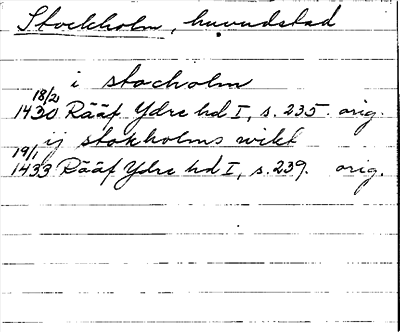 Stockholm, huvudstad
i stocholm
18/2 1430 Rääf Ydre hd I, s. 235. orig.
ij stokholms wikt
19/1 1433 Rääf Ydre hd I, s. 239. orig.